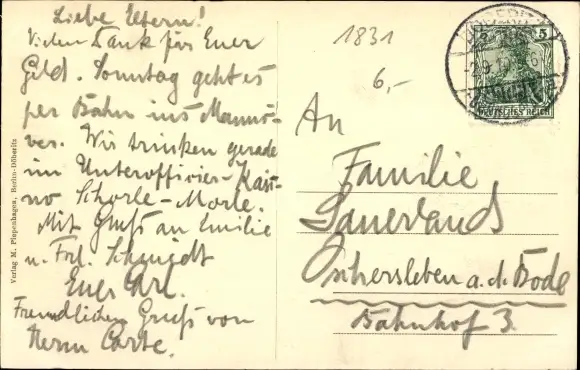 Liebe Eltern!
Vielen Dank für Euer
Geld. Sonntag geht es
per Bahn ins Mannö-
ver. Wir trinken gerade
im Unteroffizier-Kasi-
no Schorle-Morle.
Mit Gruß an Emilie
u. Frl. Schmidt
Euer
Freundlichen Gruß von
Herrn
Verlag M. Piepenhagen, Berlin-Döberitz
1831
6,-
5
DEUTSCHES REICH
An
Familie
Sauerland
Oschersleben a.d. Bode
Bahnhof 3.